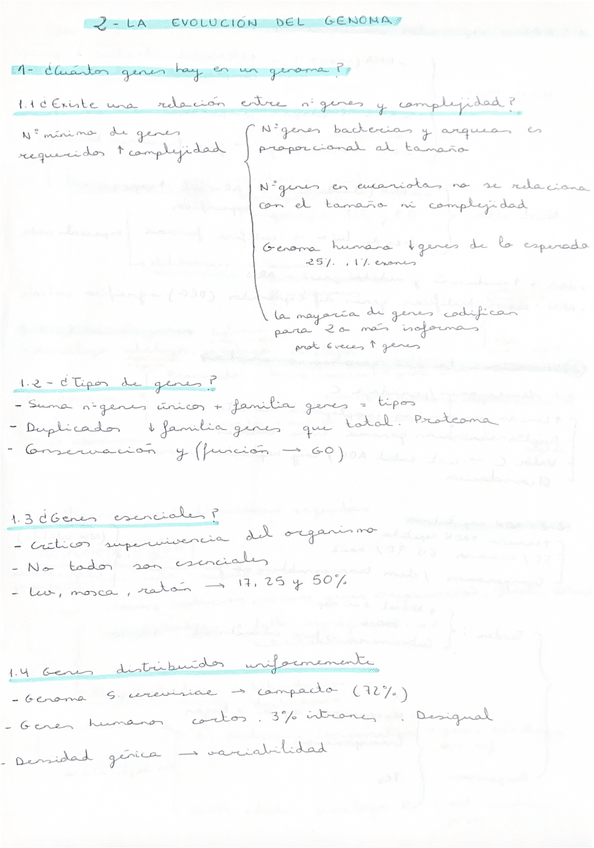 2 - LA EVOLUCIÓN DEL GENOMA
1- ¿Cuántos genes hay en un genoma?
1.1 ¿Existe una relación entre nº genes y complejidad?
Nº mínimo de genes
requeridos ↑ complejidad
Nº genes bacterias y arqueas es
proporcional al tamaño
Nº genes en eucariotas no se relaciona
con el tamaño ni complejidad
Genoma humano ↓ genes de lo esperado
25%, 1% exones
La mayoría de genes codifican
para 2 o más isoformas
prot 6 veces ↑ genes
1.2 - ¿Tipos de genes?
- Suma nº genes únicos + familia genes = tipos
- Duplicados ↓ familia genes que total. Proteoma
- Conservación y (función → GO)
1.3 ¿Genes esenciales?
- Críticos supervivencia del organismo
- No todos son esenciales
- Lev, mosca, ratón → 17, 25 y 50%
1.4 Genes distribuidos uniformemente
- Genoma S. cerevisiae → compacto (72%)
- Genes humanos cortos. 3% intrones. Desigual
- Densidad génica → variabilidad